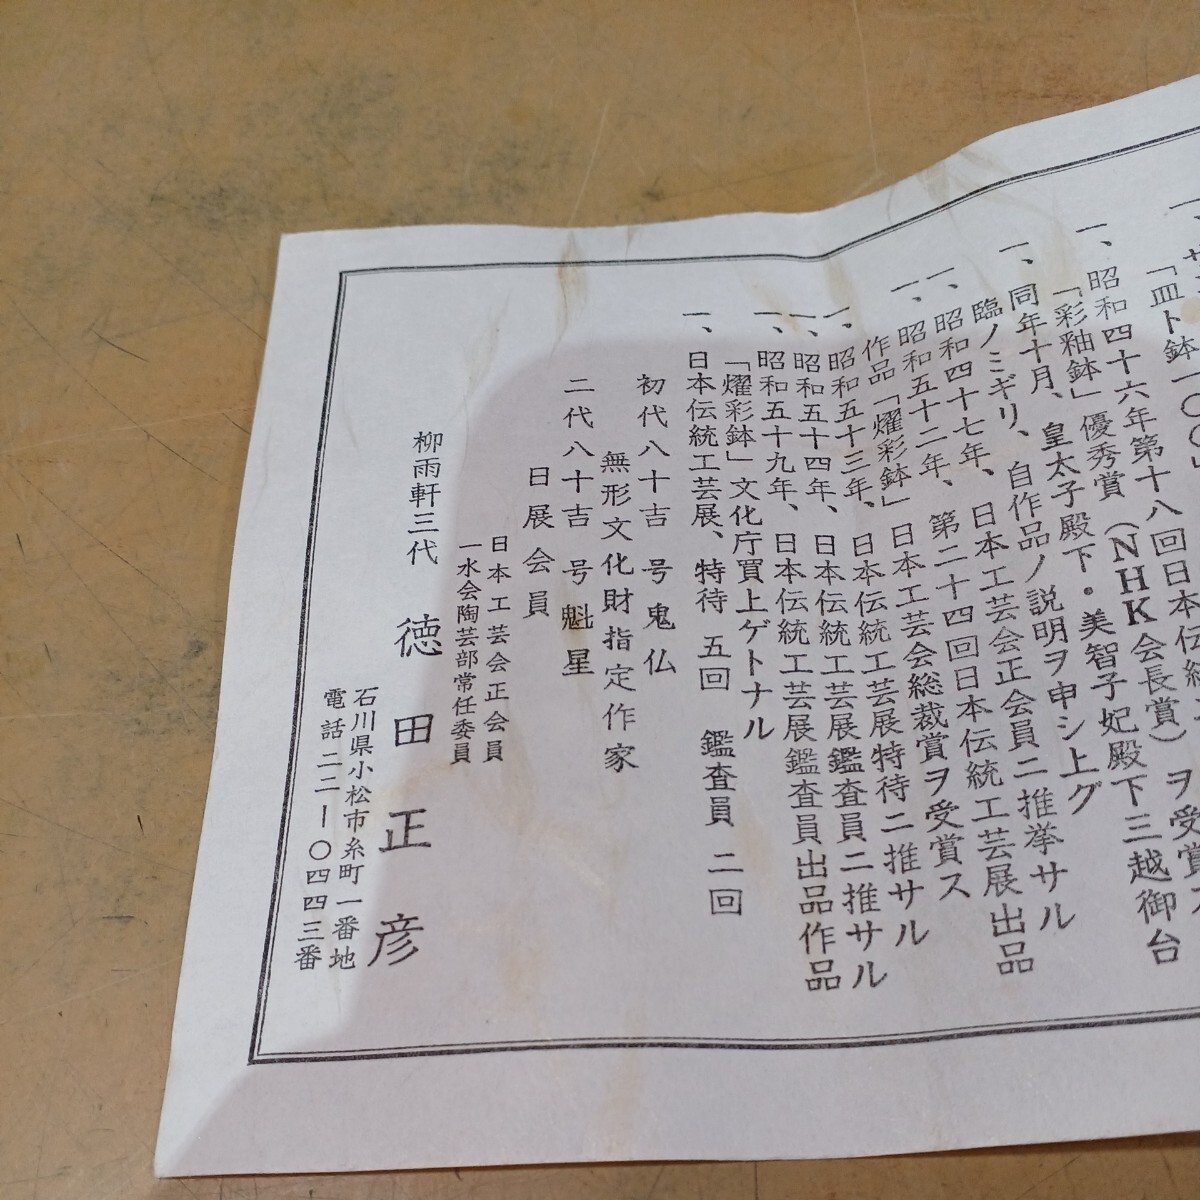 「皿ト鉢一〇〇」
一、昭和四十六年第十八回日本伝統
「彩釉鉢」優秀賞(NHK会長賞)ヲ受賞ス
一、同年十月、皇太子殿下・美智子妃殿下三越御台
臨ノミギリ、自作品ノ説明ヲ申シ上グ
一、昭和四十七年、日本工芸会正会員ニ推挙サル
一、昭和五十二年、第二十四回日本伝統工芸展出品
作品「燿彩鉢」日本工芸会総裁賞ヲ受賞ス
一、昭和五十三年、日本伝統工芸展特待ニ推サル
一、昭和五十四年、日本伝統工芸展鑑査員ニ推サル
一、昭和五十九年、日本伝統工芸展鑑査員出品作品
「燿彩鉢」文化庁買上ゲトナル
一、日本伝統工芸展、特待 五回 鑑査員 二回
初代八十吉 号鬼仏
無形文化財指定作家
二代八十吉 号魁星
日展会員
日本工芸会正会員
一水会陶芸部常任委員
柳雨軒三代 徳田正彦
石川県小松市糸町一番地
電話二二ー〇四四三番